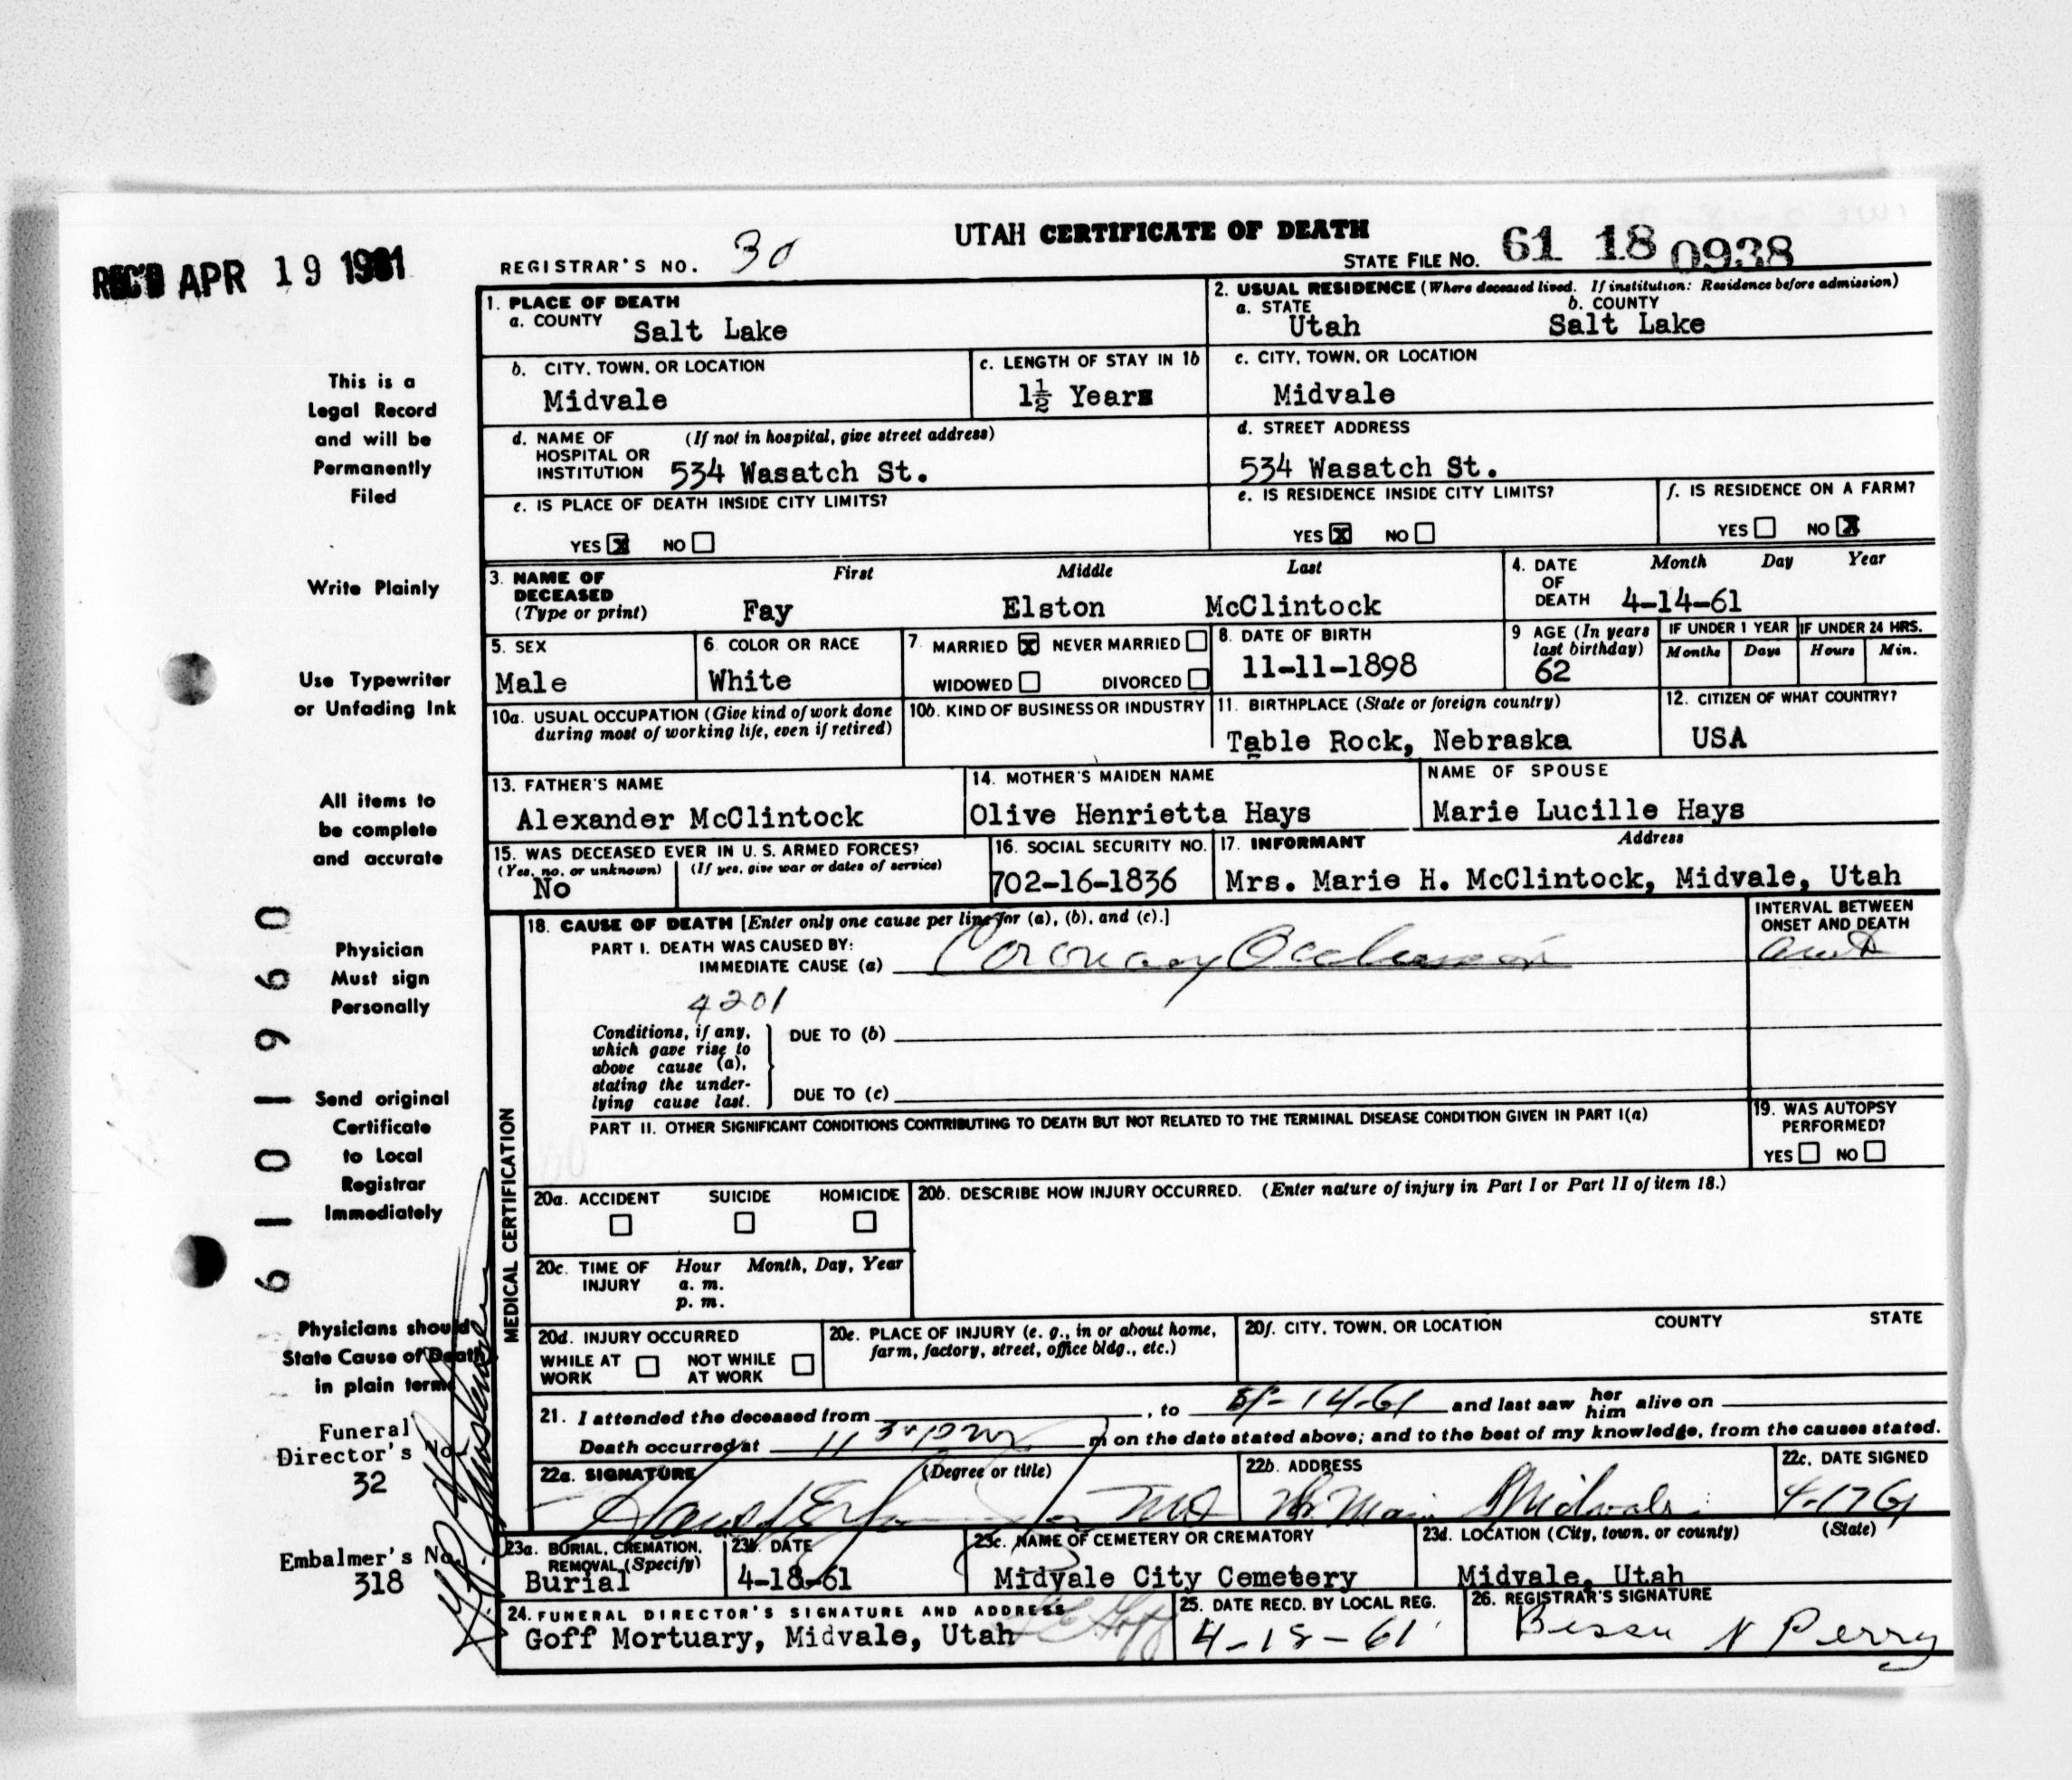 REC'D APR 19 1961
UTAH CERTIFICATE OF DEATH
REGISTRAR'S NO. 30
STATE FILE NO. 61 18 0938
This is a
Legal Record
and will be
Permanently
Filed
Write Plainly
Use Typewriter
or Unfading Ink
All items to
be complete
and accurate
Physician
Must sign
Personally
Send original
Certificate
to Local
Registrar
Immediately
Physicians should
State Cause of Death
in plain terms
Funeral
Director's No.
32
Embalmer's No.
318
6 1 0 1 1 9 6 0
1. PLACE OF DEATH
a. COUNTY Salt Lake
2. USUAL RESIDENCE (Where deceased lived. If institution: Residence before admission)
a. STATE Utah b. COUNTY Salt Lake
b. CITY, TOWN, OR LOCATION
Midvale
c. LENGTH OF STAY IN 1b
1½ Years
c. CITY, TOWN, OR LOCATION
Midvale
d. NAME OF (If not in hospital, give street address)
HOSPITAL OR
INSTITUTION 534 Wasatch St.
d. STREET ADDRESS
534 Wasatch St.
e. IS PLACE OF DEATH INSIDE CITY LIMITS?
YES X NO
e. IS RESIDENCE INSIDE CITY LIMITS?
YES X NO
f. IS RESIDENCE ON A FARM?
YES NO X
3. NAME OF First Middle Last
DECEASED
(Type or print) Fay Elston McClintock
4. DATE Month Day Year
OF
DEATH 4-14-61
5. SEX
Male
6. COLOR OR RACE
White
7. MARRIED X NEVER MARRIED
WIDOWED DIVORCED
8. DATE OF BIRTH
11-11-1898
9 AGE (In years
last birthday)
62
IF UNDER 1 YEAR
Months Days
IF UNDER 24 HRS.
Hours Min.
10a. USUAL OCCUPATION (Give kind of work done
during most of working life, even if retired)
10b. KIND OF BUSINESS OR INDUSTRY
11. BIRTHPLACE (State or foreign country)
Table Rock, Nebraska
12. CITIZEN OF WHAT COUNTRY?
USA
13. FATHER'S NAME
Alexander McClintock
14. MOTHER'S MAIDEN NAME
Olive Henrietta Hays
NAME OF SPOUSE
Marie Lucille Hays
15. WAS DECEASED EVER IN U. S. ARMED FORCES?
(Yes, no. or unknown) (If yes, give war or dates of service)
No
16. SOCIAL SECURITY NO.
702-16-1836
17. INFORMANT Address
Mrs. Marie H. McClintock, Midvale, Utah
MEDICAL CERTIFICATION
18. CAUSE OF DEATH [Enter only one cause per line for (a), (b), and (c).]
PART I. DEATH WAS CAUSED BY:
IMMEDIATE CAUSE (a) Coronary Occlusion
INTERVAL BETWEEN
ONSET AND DEATH
4201
Conditions, if any,
which gave rise to
above cause (a),
stating the under-
lying cause last.
DUE TO (b)
DUE TO (c)
PART II. OTHER SIGNIFICANT CONDITIONS CONTRIBUTING TO DEATH BUT NOT RELATED TO THE TERMINAL DISEASE CONDITION GIVEN IN PART I(a)
19. WAS AUTOPSY
PERFORMED?
YES NO
20a. ACCIDENT SUICIDE HOMICIDE
20b. DESCRIBE HOW INJURY OCCURRED. (Enter nature of injury in Part I or Part II of item 18.)
20c. TIME OF Hour Month, Day, Year
INJURY a. m.
p. m.
20d. INJURY OCCURRED
WHILE AT NOT WHILE
WORK AT WORK
20e. PLACE OF INJURY (e. g., in or about home,
farm, factory, street, office bldg., etc.)
20f. CITY, TOWN, OR LOCATION COUNTY STATE
21. I attended the deceased from , to 4-14-61 and last saw her him alive on
Death occurred at 11 30 pm m on the date stated above; and to the best of my knowledge, from the causes stated.
22a. SIGNATURE (Degree or title)
MD
22b. ADDRESS
Main Midvale
22c. DATE SIGNED
4-17 61
23a. BURIAL, CREMATION,
REMOVAL (Specify)
Burial
23b. DATE
4-18-61
23c. NAME OF CEMETERY OR CREMATORY
Midvale City Cemetery
23d. LOCATION (City, town, or county) (State)
Midvale, Utah
24. FUNERAL DIRECTOR'S SIGNATURE AND ADDRESS
Goff Mortuary, Midvale, Utah
25. DATE RECD. BY LOCAL REG.
4-18-61
26. REGISTRAR'S SIGNATURE
Bessie N Perry